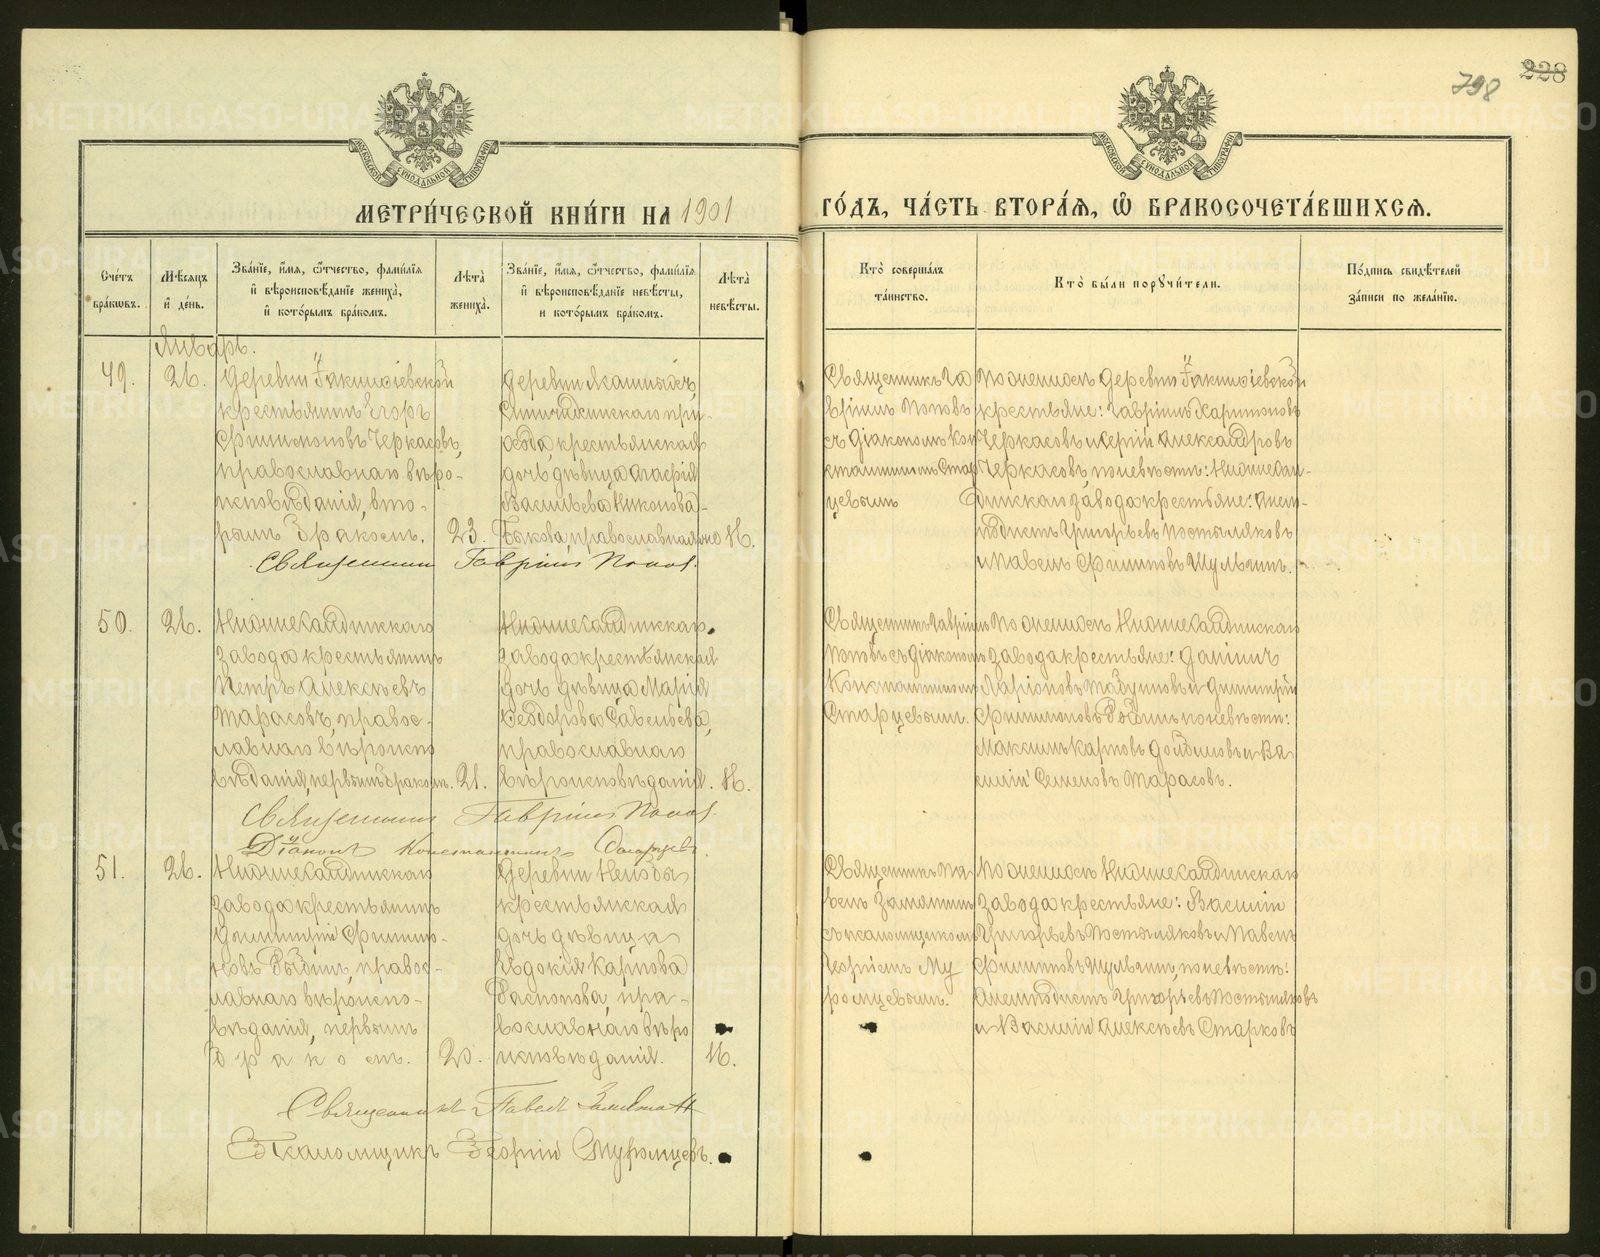 798
228
МОСКОВСКОЙ СѴНОДАЛЬНОЙ ТИПОГРАФІИ
МОСКОВСКОЙ СѴНОДАЛЬНОЙ ТИПОГРАФІИ
МЕТРИ́ЧЕСКОЙ КНИ́ГИ НА 1901
ГО́ДЪ, ЧА́СТЬ ВТОРА́Я, Ѡ БРАКОСОЧЕТА́ВШИХСЯ.
Сче́тъ бра́ковъ.
Мѣ́сяцъ и҆ де́нь.
Зва́нїе, и҆́мя, ѻ҆́тчество, фами́лїя и҆ вѣроисповѣ́данїе жениха̀, и҆ кото́рымъ бра́комъ.
Лѣ́та жениха̀.
Зва́нїе, и҆́мя, ѻ҆́тчество, фами́лїя и҆ вѣроисповѣ́данїе невѣ́сты, и кото́рымъ бра́комъ.
Лѣ́та невѣ́сты.
Кто̀ соверша́лъ та́инство.
Кто̀ бы́ли порꙋчи́тели.
По́дпись свидѣ́телей за́писи по жела́нїю.
Январь.
49.
26.
деревни
крестьянинъ Егоръ
Филимоновъ Черкасовъ,
православнаго вѣро-
исповѣданія, вто-
рымъ бракомъ.
23.
деревни
при-
хода, крестьянская
дочь дѣвица
Васильева Никонова-
Быкова, православная
16.
Священникъ Га
вріилъ Поповъ
съ діакономъ Кон
стантиномъ Стар
цевымъ
По женихѣ деревни
крестьяне: Гавріилъ Харитоновъ
Черкасовъ и Сергій Александровъ
Черкасовъ, по невѣстѣ: Нижнесал-
динскаго завода крестьяне:
Григорьевъ Постыляковъ
и Павелъ Филиповъ Шульгинъ.
Священникъ Гавріилъ Попов.
50.
26.
Нижнесалдинскаго
завода крестьянинъ
Петръ Алексѣевъ
Тарасовъ, право-
славнаго вѣроиспо
вѣданія, первымъ бракомъ.
21.
Нижнесалдинскаго
завода крестьянская
дочь дѣвица Марія
Ѳеодорова Савельева,
православнаго
вѣроисповѣданія.
16.
Священникъ Гавріилъ
Поповъ съ діакономъ
Константиномъ
Старцевымъ.
По женихѣ Нижнесалдинскаго
завода крестьяне: Даніилъ
Ларіоновъ Табуновъ и Димитрій
Филимоновъ по невѣстѣ:
Максимъ Карповъ и Ва
силій Семеновъ Тарасовъ.
Священникъ Гавріилъ Попов.
Діаконъ Константинъ Старцевъ.
51.
26.
Нижнесалдинскаго
завода крестьянинъ
Димитрій Филимо-
новъ правос-
лавнаго вѣроиспо-
вѣданія, первымъ
бракомъ.
20.
Деревни
крестьянская
дочь дѣвица
Евдокія Карпова
Распопова, пра-
вославнаго вѣро
исповѣданія.
16.
Священникъ Па
велъ Замятинъ
съ псаломщикомъ
Георгіемъ Му
ромцевымъ.
По женихѣ Нижнесалдинскаго
завода крестьяне: Василій
Григорьевъ Постыляковъ и Павелъ
Филиповъ Шульгинъ, по невѣстѣ:
Григорьевъ Постыляковъ
и Василій Алексѣевъ Старковъ
Священникъ Павелъ Замятинъ
Псаломщикъ Георгій Муромцевъ.
METRIKI.GASO-URAL.RU